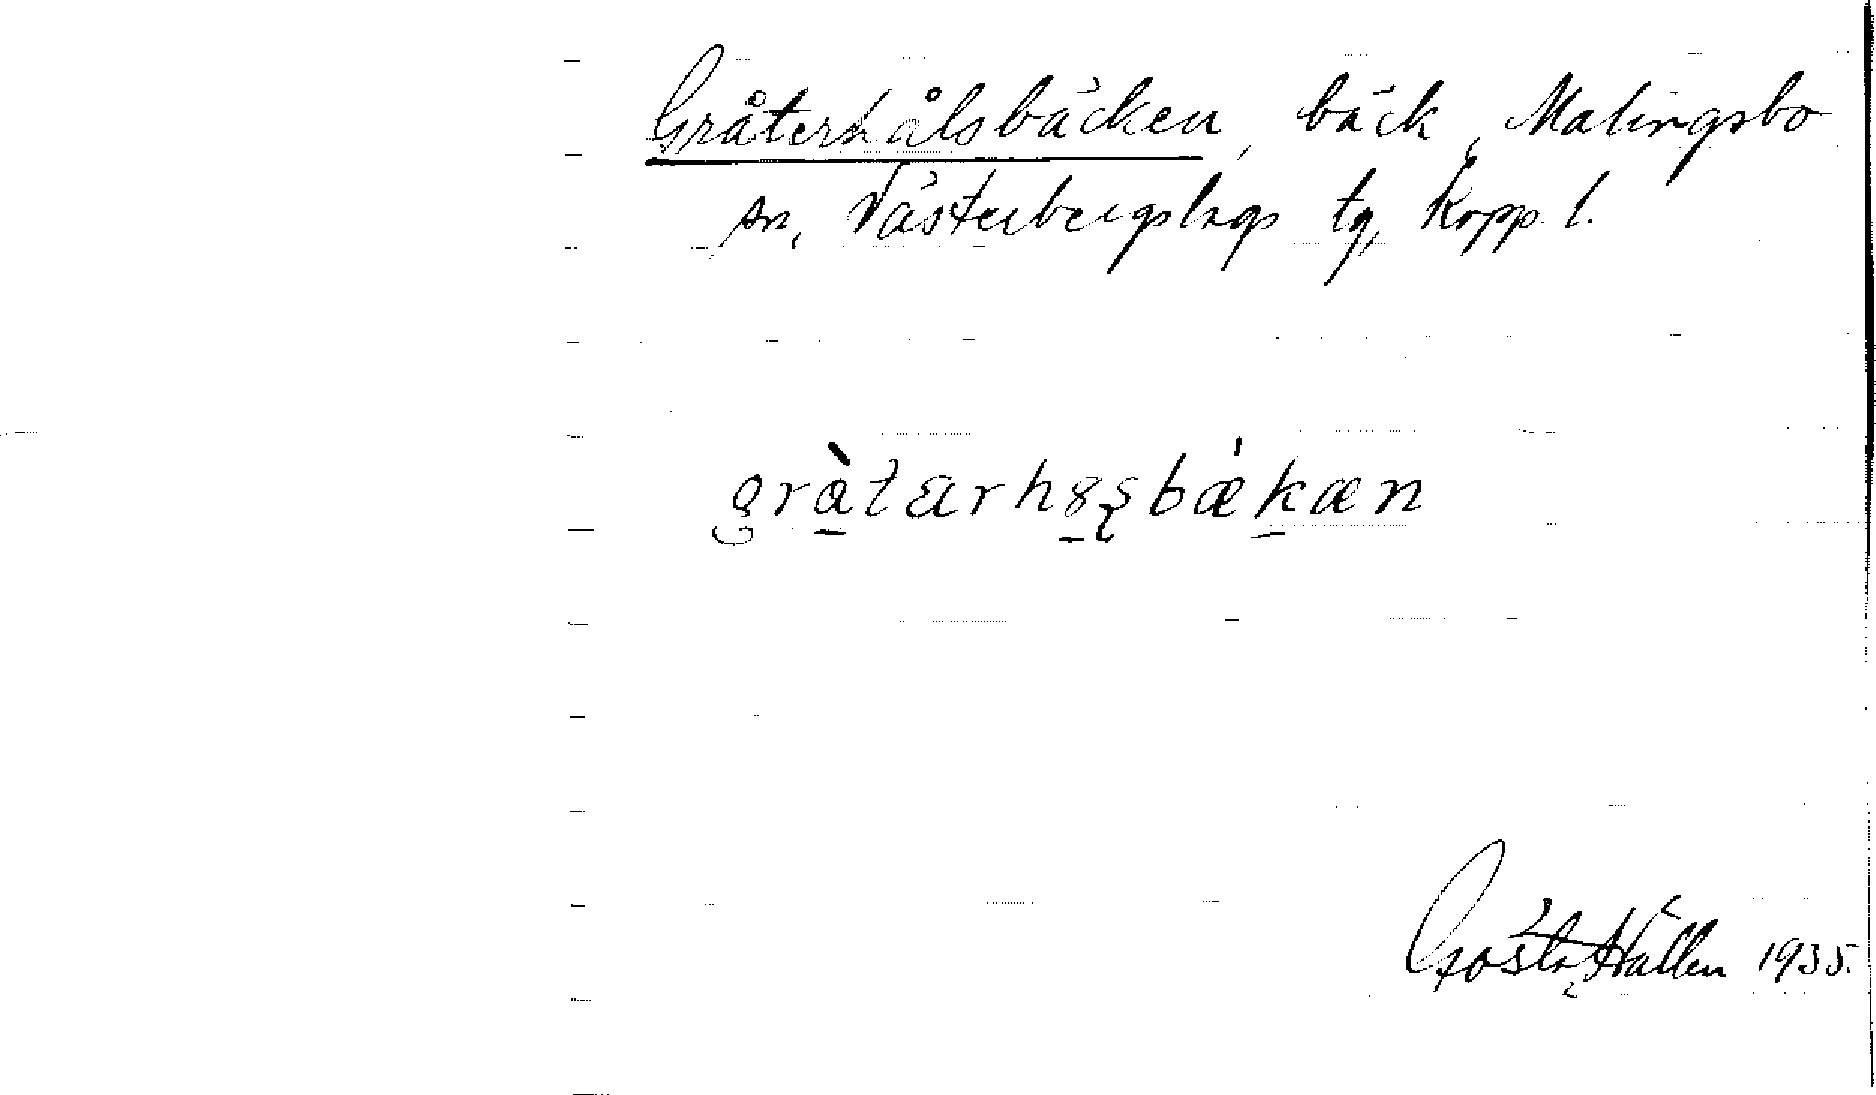 Gråterhålsbäcken, bäck, Malingsbo
sn, Västerbergslags tg, Kopp. l.
gràtærhȣʂbǽkæn
Gösta Hällen 1935.